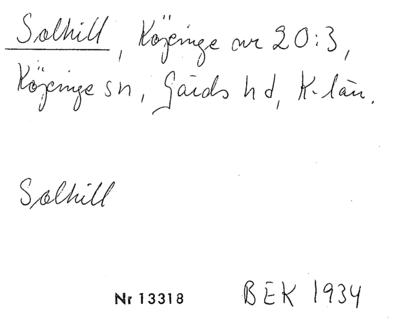 Solhill, Köpinge nr 20:3,
Köpinge sn, Gärds hd, K-län.
Solhill
Nr 13318 BEK 1934